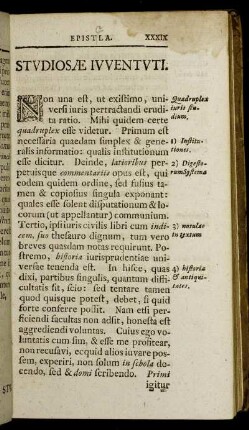 EPISTLA. XXXIX
STVDIOSÆ IVVENTVTI.
Non una est, ut existimo, uni-
versi iuris pertractandi erudi-
ta ratio. Mihi quidem certe
quadruplex esse videtur. Primum est
necessaria quædam simplex & gene-
ralis informatio: qualis institutionum
esse dicitur. Deinde, latioribus per-
petuisque commentariis opus est, qui
eodem quidem ordine, sed fusius ta-
men & copiosius singula exponant:
quales esse solent disputationum & lo-
corum (ut appellantur) communium.
Tertio, ipsi iuris civilis libri cum indi-
cem, sus thesauro dignum, tum vero
breves quasdam notas requirunt. Po-
stremo, historia iurisprudentiae uni-
versæ tenenda est. In hisce, quas
dixi, partibus singulis, quantum diffi-
cultatis sit, scio: sed tentare tamen
quod quisque potest, debet, si quid
forte conferre possit. Nam etsi per-
ficiendi facultas non adsit, honesta est
aggrediendi voluntas. Cuius ego vo-
luntatis cum sim, & esse me profitear,
non recusavi, ecquid alios iuvare pos-
sem, experiri, non solum in schola do-
cendo, sed & domi scribendo. Primi
igitur
Quadruplex
iuris stu-
dium.
1) Institu-
tiones.
2) Digesto-
rum Systema
3) notulæ
in textum
4) historia
& antiqui-
tates.